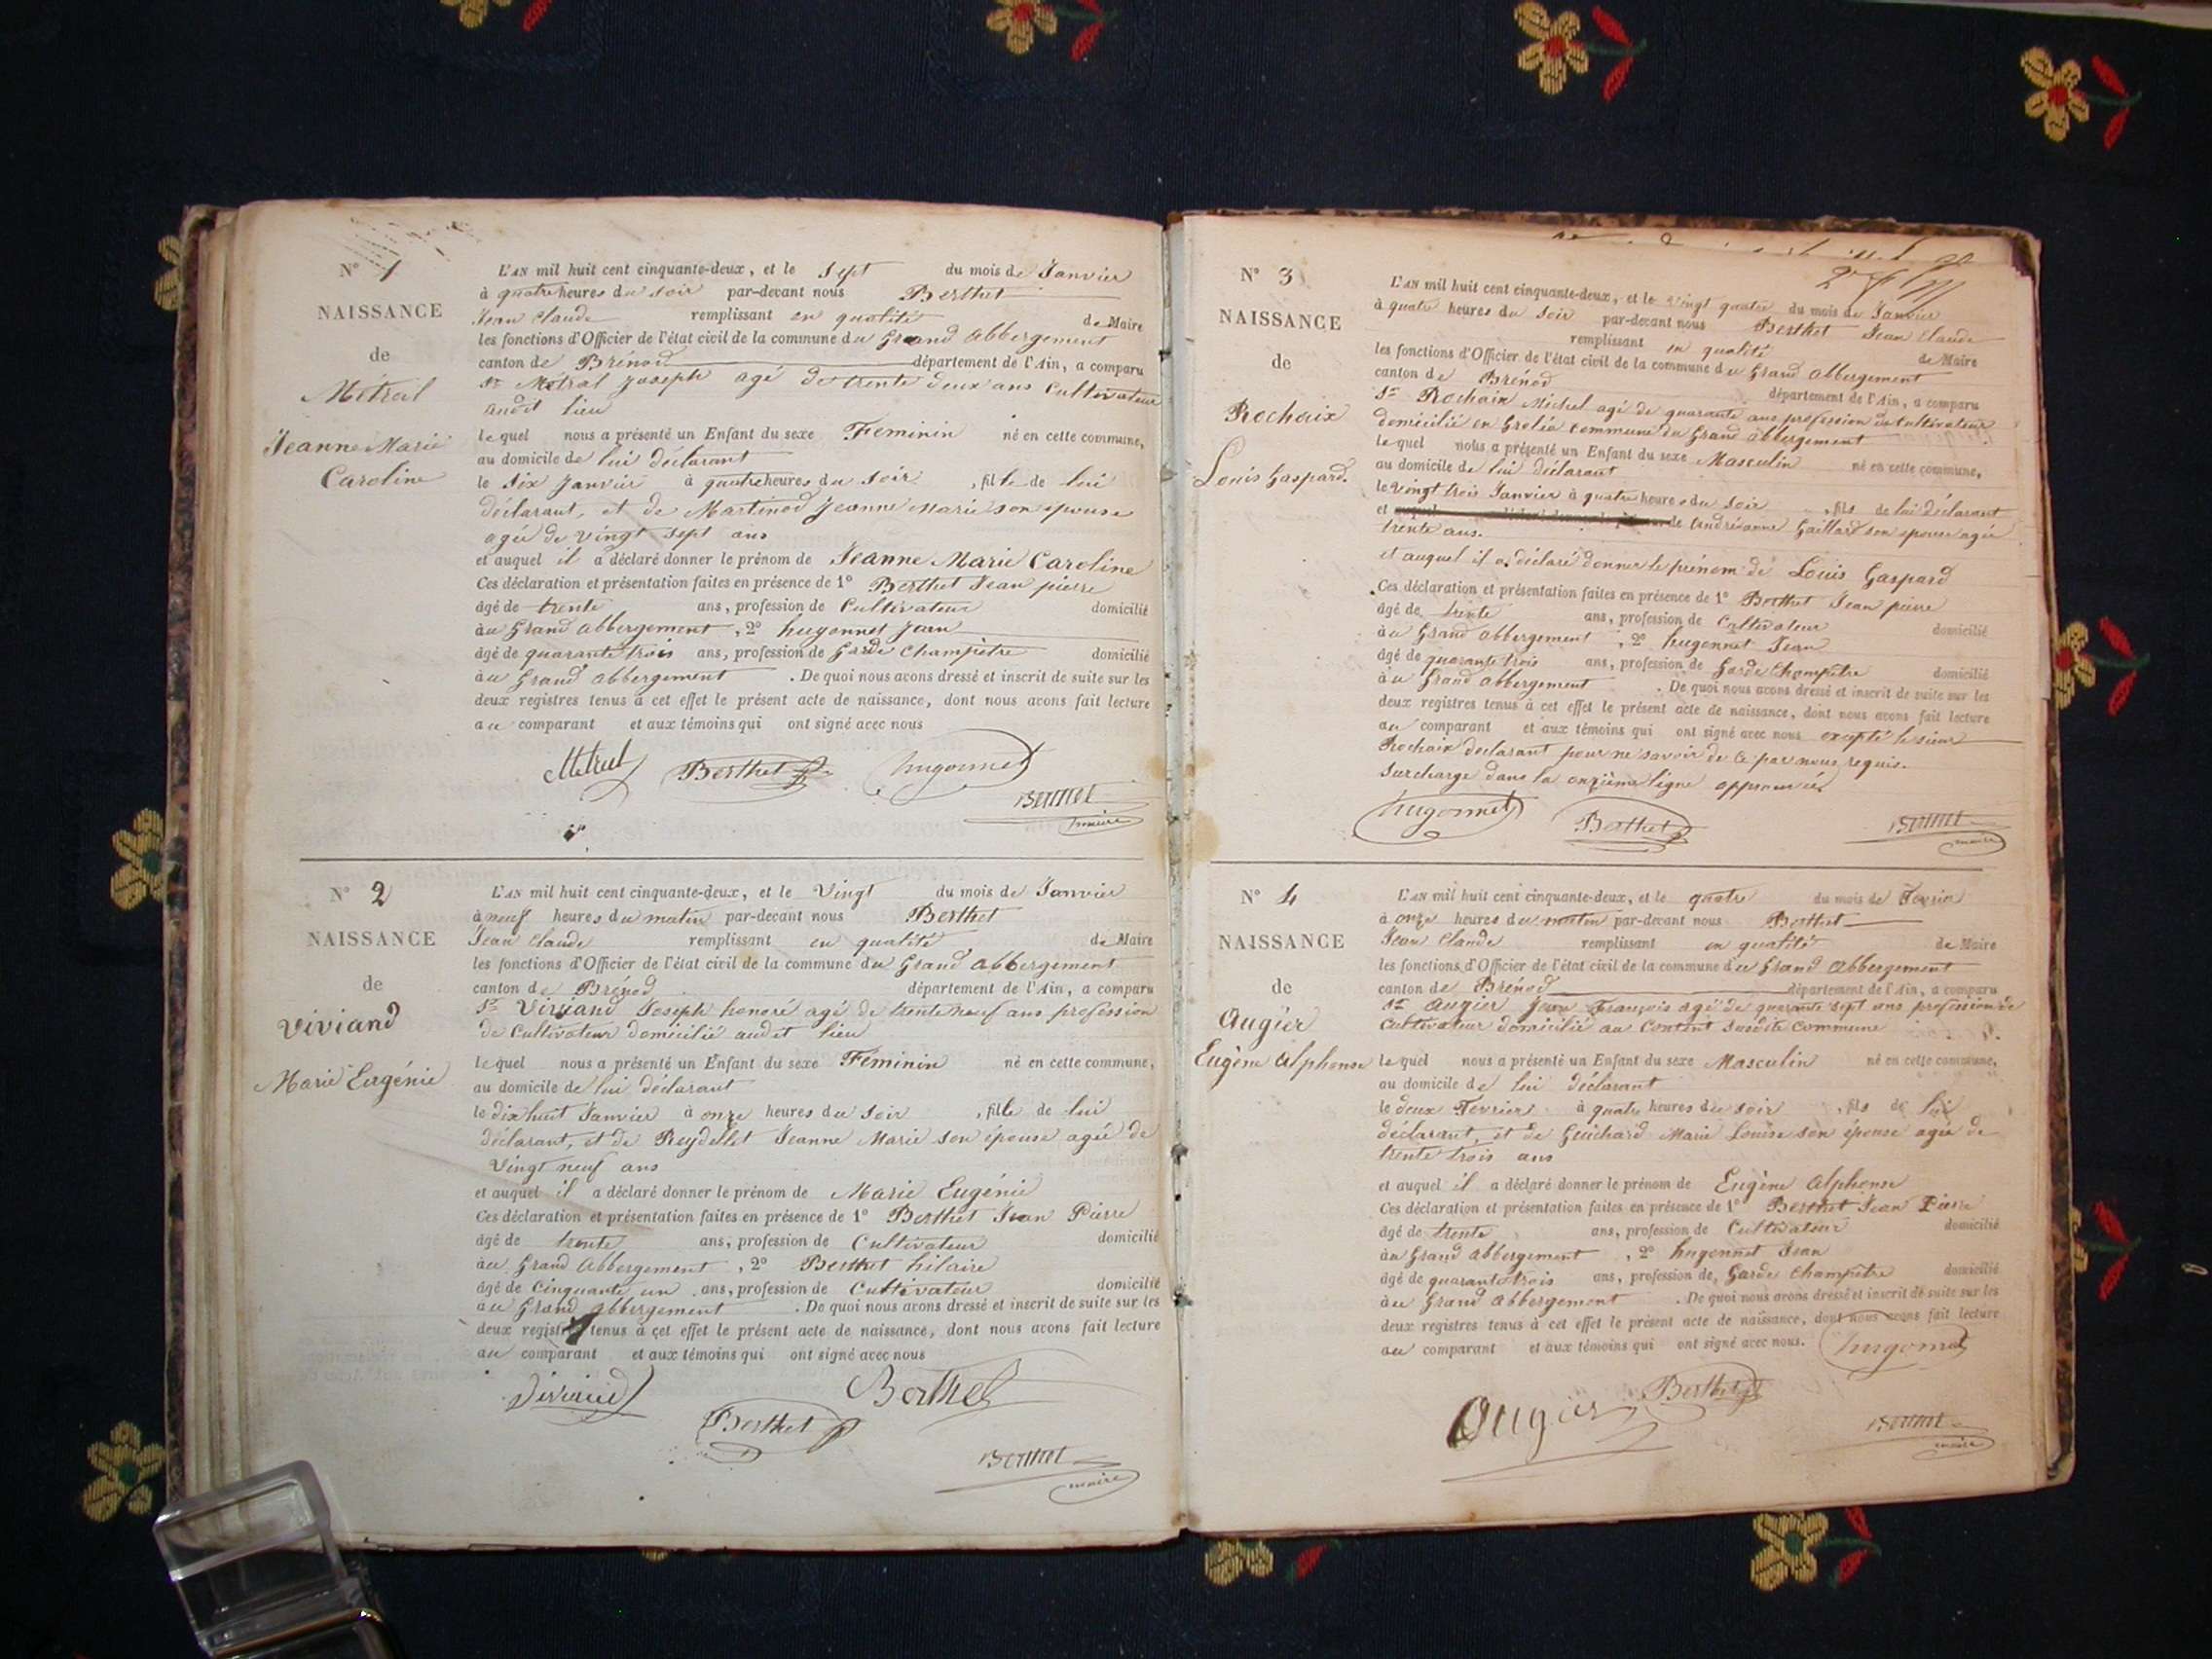 N° 1
NAISSANCE
de
Métral
Jeanne Marie
Caroline
L'AN mil huit cent cinquante-deux, et le sept du mois de Janvier
à quatre heures du soir par-devant nous Berthet
Jean Claude remplissant en qualité de Maire
les fonctions d'Officier de l'état civil de la commune du Grand Abbergement
canton de Brénod département de l'Ain, a comparu
Sr Métral Joseph agé de trente deux ans Cultivateur
audit lieu
lequel nous a présenté un Enfant du sexe Feminin né en cette commune,
au domicile de lui déclarant
le six Janvier à quatre heures du soir, fille de lui
déclarant, et de Martinod Jeanne Marie son épouse
agée de vingt sept ans
et auquel il a déclaré donner le prénom de Jeanne Marie Caroline
Ces déclaration et présentation faites en présence de 1° Berthet Jean pierre
âgé de trente ans, profession de Cultivateur domicilié
au Grand Abbergement, 2° hugonnet Jean
âgé de quarante trois ans, profession de Garde Champêtre domicilié
au Grand Abbergement. De quoi nous avons dressé et inscrit de suite sur les
deux registres tenus à cet effet le présent acte de naissance, dont nous avons fait lecture
au comparant et aux témoins qui ont signé avec nous
Metral Berthet hugonnet
Berthet
maire
N° 2
NAISSANCE
de
Viviand
Marie Eugénie
L'AN mil huit cent cinquante-deux, et le Vingt du mois de Janvier
à neuf heures du matin par-devant nous Berthet
Jean Claude remplissant en qualité de Maire
les fonctions d'Officier de l'état civil de la commune du Grand Abbergement
canton de Brénod département de l'Ain, a comparu
Sr Viviand Joseph honoré agé de trente neuf ans profession
de Cultivateur domicilié audit lieu
lequel nous a présenté un Enfant du sexe Féminin né en cette commune,
au domicile de lui déclarant
le dix huit Janvier à onze heures du soir, fille de lui
déclarant, et de Reydellet Jeanne Marie son épouse agée de
Vingt neuf ans
et auquel il a déclaré donner le prénom de Marie Eugénie
Ces déclaration et présentation faites en présence de 1° Berthet Jean Pierre
âgé de trente ans, profession de Cultivateur domicilié
au Grand Abbergement, 2° Berthet hilaire
âgé de Cinquante un ans, profession de Cultivateur domicilié
au Grand Abbergement. De quoi nous avons dressé et inscrit de suite sur les
deux registres tenus à cet effet le présent acte de naissance, dont nous avons fait lecture
au comparant et aux témoins qui ont signé avec nous
Viviand Berthet
Berthet
Berthet
maire
N° 3
NAISSANCE
de
Rochaix
Louis Gaspard.
L'AN mil huit cent cinquante-deux, et le vingt quatre du mois de Janvier
à quatre heures du soir par-devant nous Berthet Jean Claude
remplissant en qualité de Maire
les fonctions d'Officier de l'état civil de la commune du Grand Abbergement
canton de Brénod département de l'Ain, a comparu
Sr Rochaix Michel agé de quarante ans profession de Cultivateur
domicilié en Grelia commune du Grand Abbergement
lequel nous a présenté un Enfant du sexe Masculin né en cette commune,
au domicile de lui déclarant
le vingt trois Janvier à quatre heures du soir, fils de lui déclarant
et de Andréanne Gaillard son épouse agée
trente ans.
et auquel il a déclaré donner le prénom de Louis Gaspard
Ces déclaration et présentation faites en présence de 1° Berthet Jean pierre
âgé de trente ans, profession de Cultivateur domicilié
au Grand Abbergement, 2° hugonnet Jean
âgé de quarante trois ans, profession de Garde Champêtre domicilié
au Grand Abbergement. De quoi nous avons dressé et inscrit de suite sur les
deux registres tenus à cet effet le présent acte de naissance, dont nous avons fait lecture
au comparant et aux témoins qui ont signé avec nous excepté le sieur
Rochaix declarant pour ne savoir de ce par nous requis.
Surcharge dans la onzième ligne approuvée
hugonnet Berthet Berthet
maire
N° 4
NAISSANCE
de
Augier
Eugène Alphonse
L'AN mil huit cent cinquante-deux, et le quatre du mois de Fevrier
à onze heures du matin par-devant nous Berthet
Jean Claude remplissant en qualité de Maire
les fonctions d'Officier de l'état civil de la commune du Grand Abbergement
canton de Brénod département de l'Ain, a comparu
Sr Augier Jean François agé de quarante sept ans profession de
Cultivateur domicilié au susdite Commune
lequel nous a présenté un Enfant du sexe Masculin né en cette commune,
au domicile de lui déclarant
le deux Fevrier à quatre heures du soir, fils de lui
déclarant, et de Guichard Marie Louise son épouse agée de
trente trois ans
et auquel il a déclaré donner le prénom de Eugène Alphonse
Ces déclaration et présentation faites en présence de 1° Berthet Jean Pierre
âgé de trente ans, profession de Cultivateur domicilié
au Grand Abbergement, 2° hugonnet Jean
âgé de quarante trois ans, profession de Garde Champêtre domicilié
au Grand Abbergement. De quoi nous avons dressé et inscrit de suite sur les
deux registres tenus à cet effet le présent acte de naissance, dont nous avons fait lecture
au comparant et aux témoins qui ont signé avec nous. hugonnet
Augier Berthet
Berthet
maire